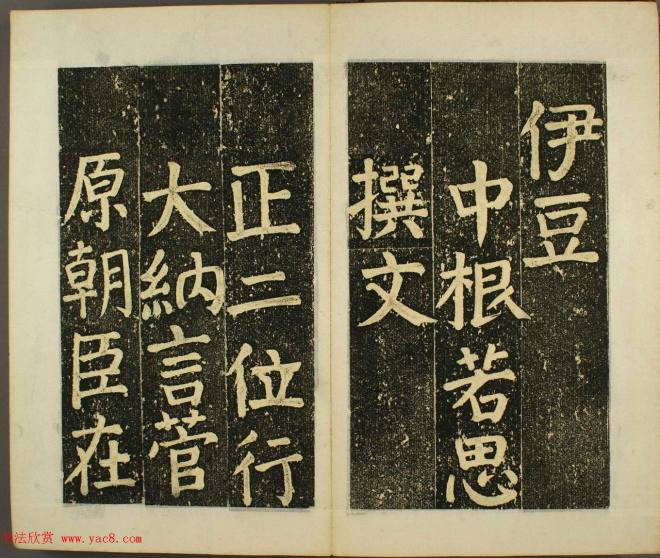 伊豆
中根若思
撰文
正二位行
大納言菅
原朝臣在
法欣赏 www.yac8.com